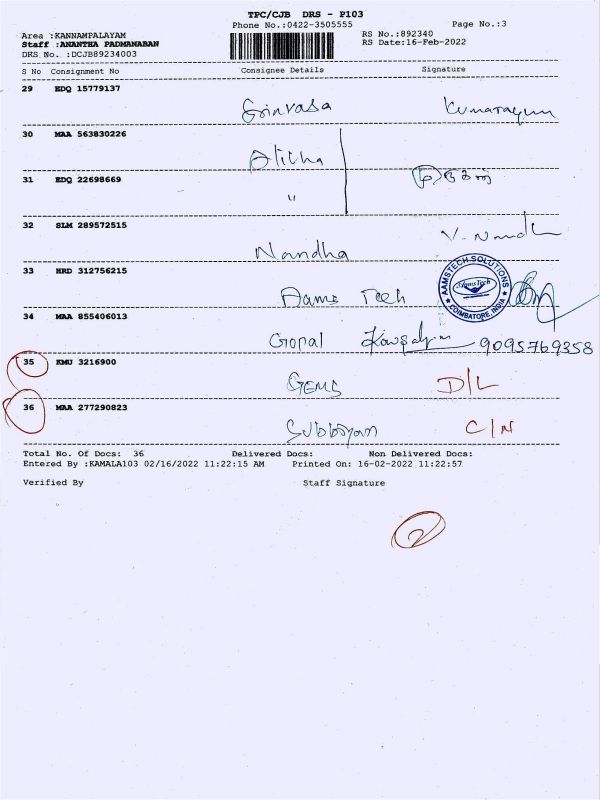 TPC/CJB DRS - P103
Phone No.:0422-3505555
Page No.:3
Area :KANNAMPALAYAM
RS No.:892340
Staff :ANANTHA PADMANABAN
RS Date:16-Feb-2022
DRS No. :DCJB89234003
S No Consignment No Consignee Details Signature
29 EDQ 15779137
Srinivasa
30 MAA 563830226
31 EDQ 22698669
"
32 SLM 289572515
Nandha V. Nandh
33 HRD 312756215
AAMSTECH SOLUTIONS
AamsTech
★ COIMBATORE, INDIA ★
Aams Tech
34 MAA 855406013
Gopal 9095769358
35 KMU 3216900
GEMS D/L
36 MAA 277290823
Subbayan C/N
Total No. Of Docs: 36 Delivered Docs: Non Delivered Docs:
Entered By :KAMALA103 02/16/2022 11:22:15 AM Printed On: 16-02-2022 11:22:57
Verified By Staff Signature
2